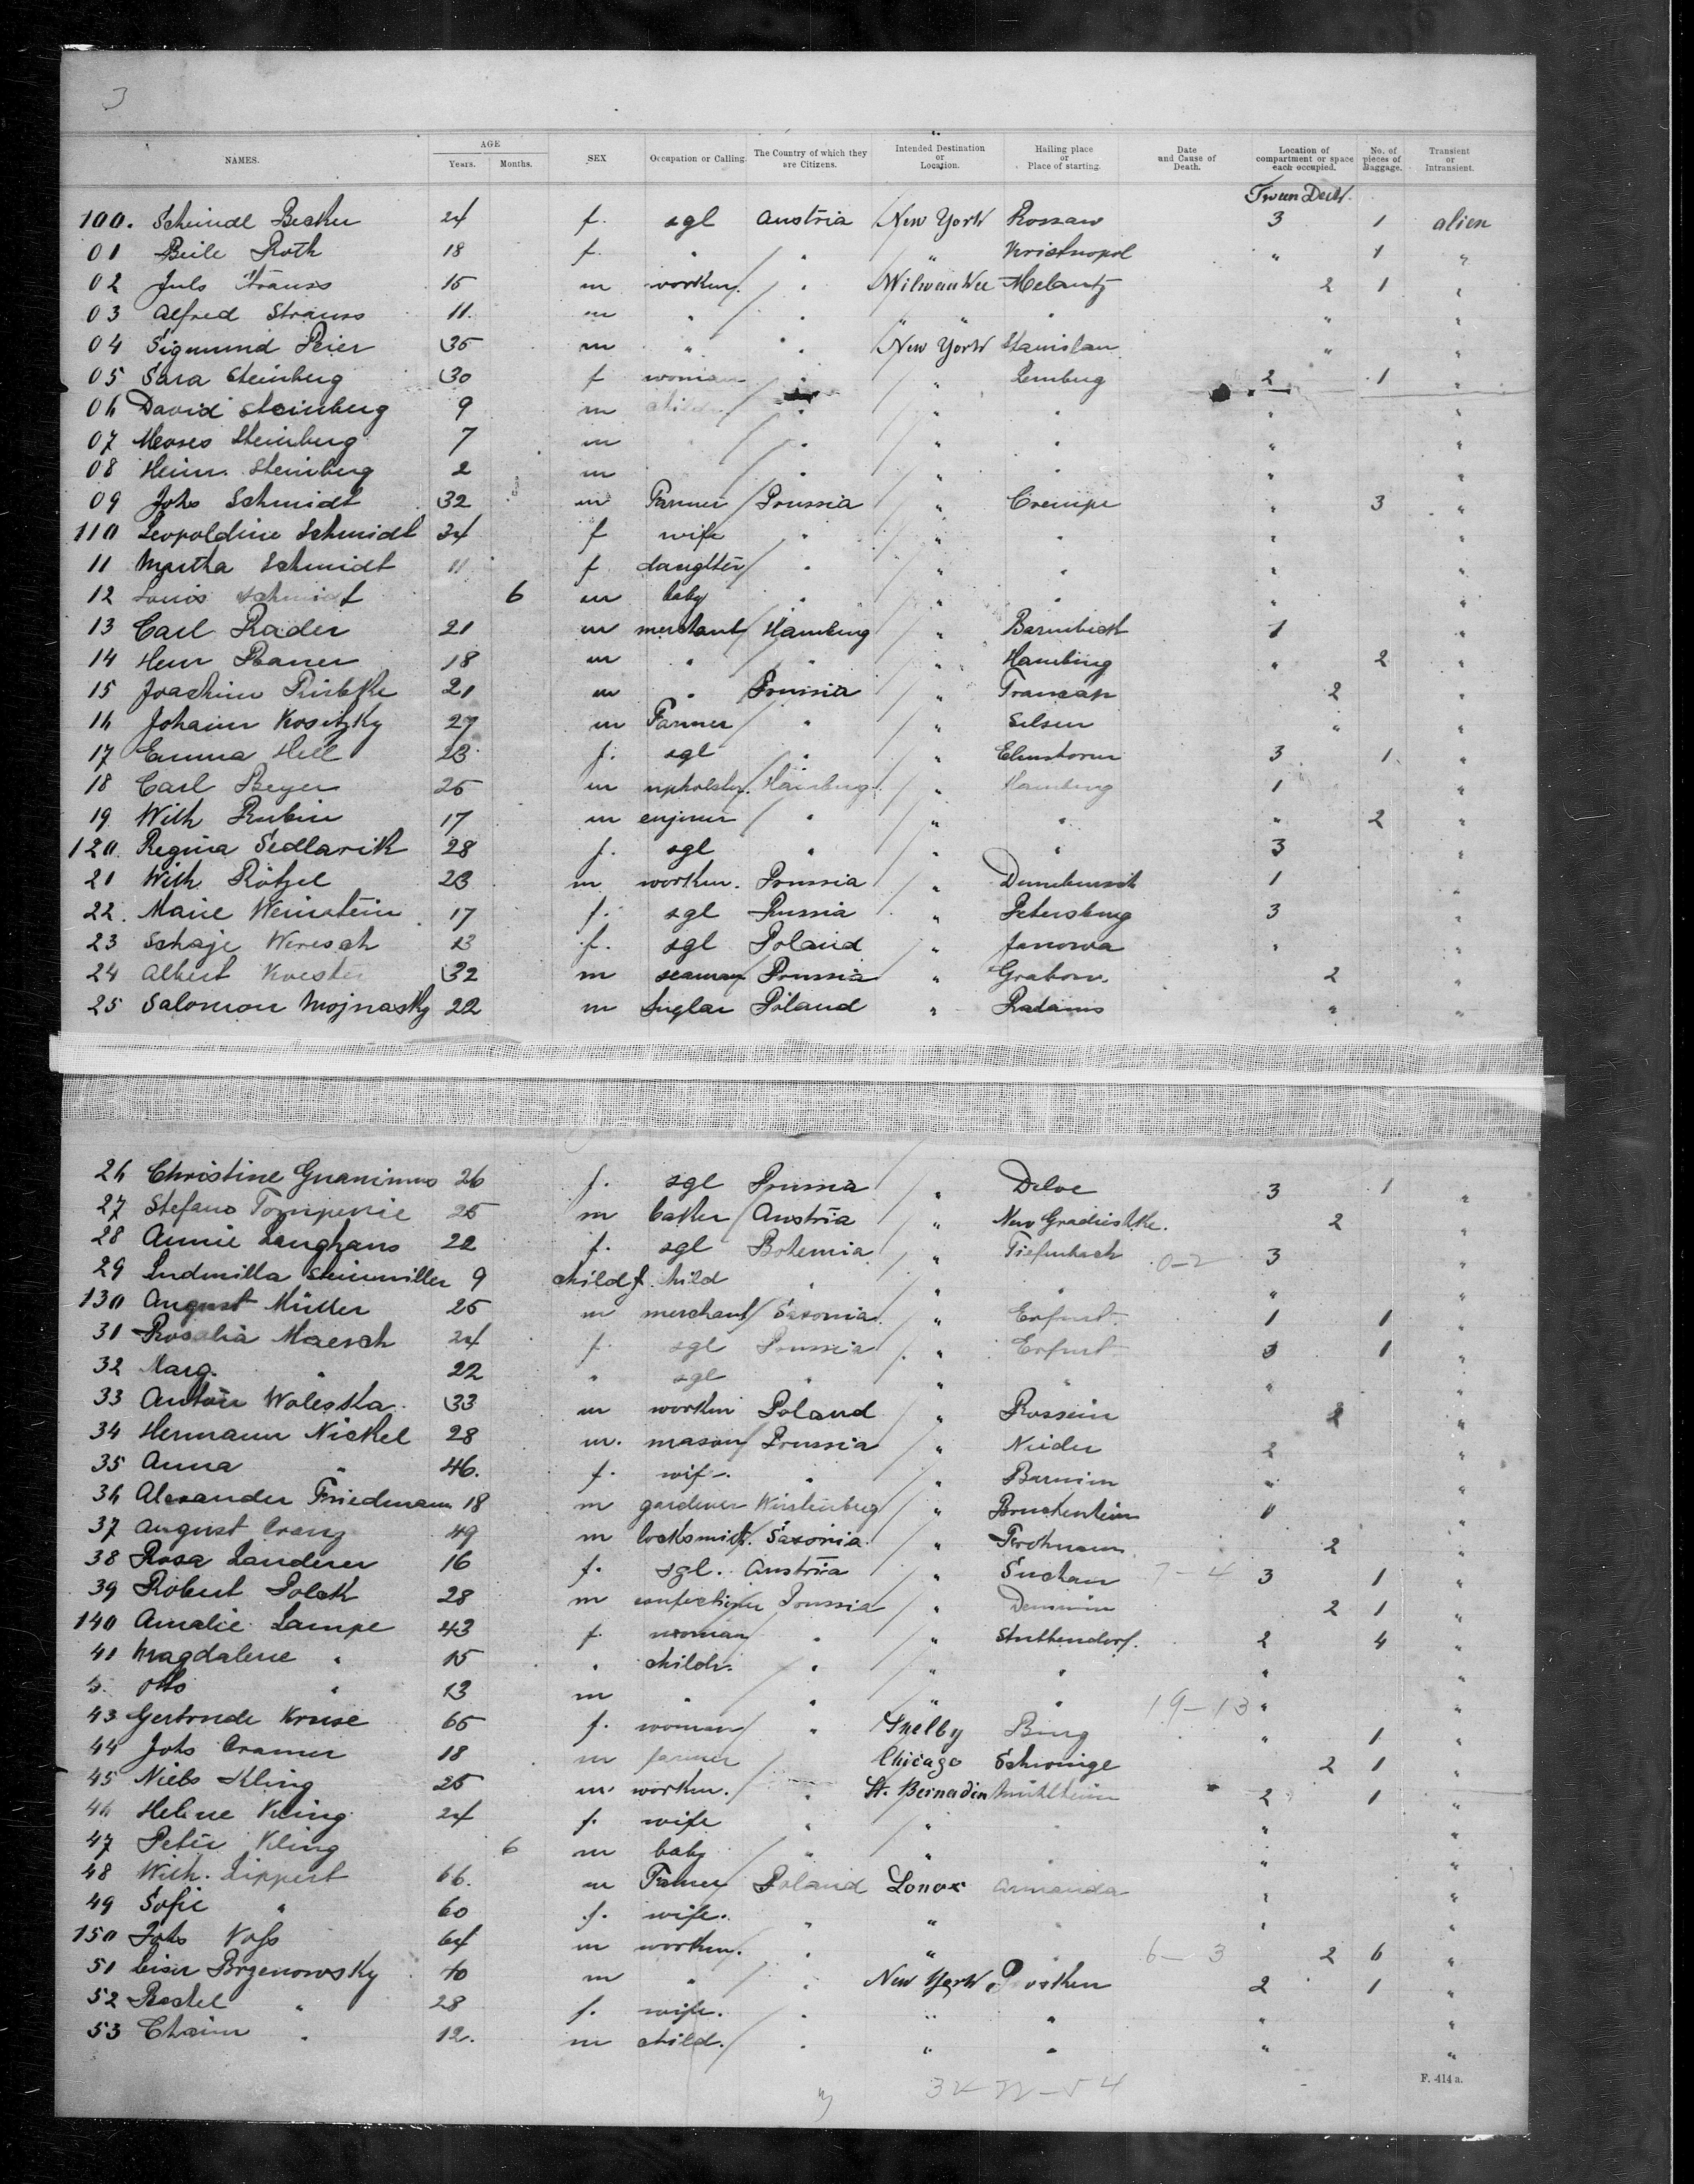 3
NAMES. AGE Years. Months. SEX Occupation or Calling. The Country of which they are Citizens. Intended Destination or Location. Hailing place or Place of starting. Date and Cause of Death. Location of compartment or space each occupied. No. of pieces of Baggage. Transient or Intransient.
Tween Deck.
100. Scheindl 24 f. sgl Austria New York Rossaw 3 1 alien
01 Beile Roth 18 f. " " " Kristnopol " 1 "
02 Juls Strauss 15 m workm. " Milwaukee 2 1 "
03 Alfred Strauss 11. m " " " " " "
04 Sigmund Peier 35 m " " New York Stanislau " "
05 Sara Steinberg 30 f woman " " Lemberg 2 1 "
06 David Steinberg 9 m " " " " "
07 Moses Steinberg 7 m " " " " "
08 Heinr. Steinberg 2 m " " " " "
09 Johs Schmidt 32 m Farmer Prussia " Crempe " 3 "
110 Leopoldine Schmidt 34 f wife " " " " "
11 Martha Schmidt 11 f daughter " " " " "
12 Louis Schmidt 6 m baby " " " " "
13 Carl Rader 21 m merchant Hamburg " Barmbeck 1 "
14 Heinr 18 m " " " Hamburg " 2 "
15 Joachim 21 m " Prussia " 2 "
16 Johann Kositzky 27 m Farmer " " " "
17 Emma Hell 23 f. sgl " " Elmshorn 3 1 "
18 Carl Beyer 25 m upholster. Hamburg " Hamburg 1 "
19 Wilh Rubin 17 m enjineer " " " " 2 "
120. Regina Sedlarik 28 f. sgl " " " 3 "
21 Wilh. Rötzel 23 m workm. Prussia " 1 "
22. Marie Weinstein 17 f. sgl Russia " Petersburg 3 "
23 Schaje Weresch 23 f. sgl Poland " Janowa " "
24 Albert Koester 32 m seaman Prussia " Grabow. 2 "
25 Salomon Mojnasky 22 m Poland " Radams " "
26 Christine 26 f. sgl Prussia " Delve 3 1 "
27 Stefano 25 m baker Austria " New Gradischke. 2 "
28 Annie Langhans 22 f. sgl Bohemia " Tiefenbach 0-2 3 "
29 Ludmilla Steinmiller 9 child f. child " " " " "
130 August Müller 25 m merchant Saxonia " Erfurt. 1 1 "
31 Rosalia Maersch 24 f. sgl Prussia " Erfurt 3 1 "
32 Marg. " 22 " sgl " " " " "
33 Anton Woleska 33 m workm Poland " Rossein 2 "
34 Hermann Nickel 28 m. mason Prussia " Nieder 2 "
35 Anna " 46. f. wife. " " Barnim " "
36 Alexander Friedmann 18 m gardener Würtenberg " 1 "
37 August 49 m locksmith. Saxonia " 2 "
38 Rosa Landerer 16 f. sgl. Austria " Suchau 7-4 3 1 "
39 Robert Polch 28 m confectioner Prussia " Demmin 2 1 "
140 Amalie Lampe 43 f. woman " " Stuttendorf. 2 4 "
41 Magdalene " 15 " childr. " " " " "
Otto " 13 m " " " " 19-13 " "
43 Gertrude Kruse 65 f. woman " Shelby Burg " 1 "
44 Johs Cramer 18 m farmer Chicago Schwinge 2 1 "
45 Niels Kling 25 m. workm. " St. Bernadin Mühlheim 2 1 "
46 Helene Kling 24 f. wife " " " " "
47 Peter Kling 6 m baby " " " " "
48 Wilh. Lippert 66. m Farmer Poland Lonox Armanda " "
49 Sofie " 60 f. wife. " " " " "
150 Johs Voss 64 m workm. " " " 6-3 2 6 "
51 Leiser Brzenowsky 40 m " " New York Prosken 2 1 "
52 Rechel " 28 f. wife. " " " " "
53 Chaim " 12. m child. " " " " "
F. 414 a.